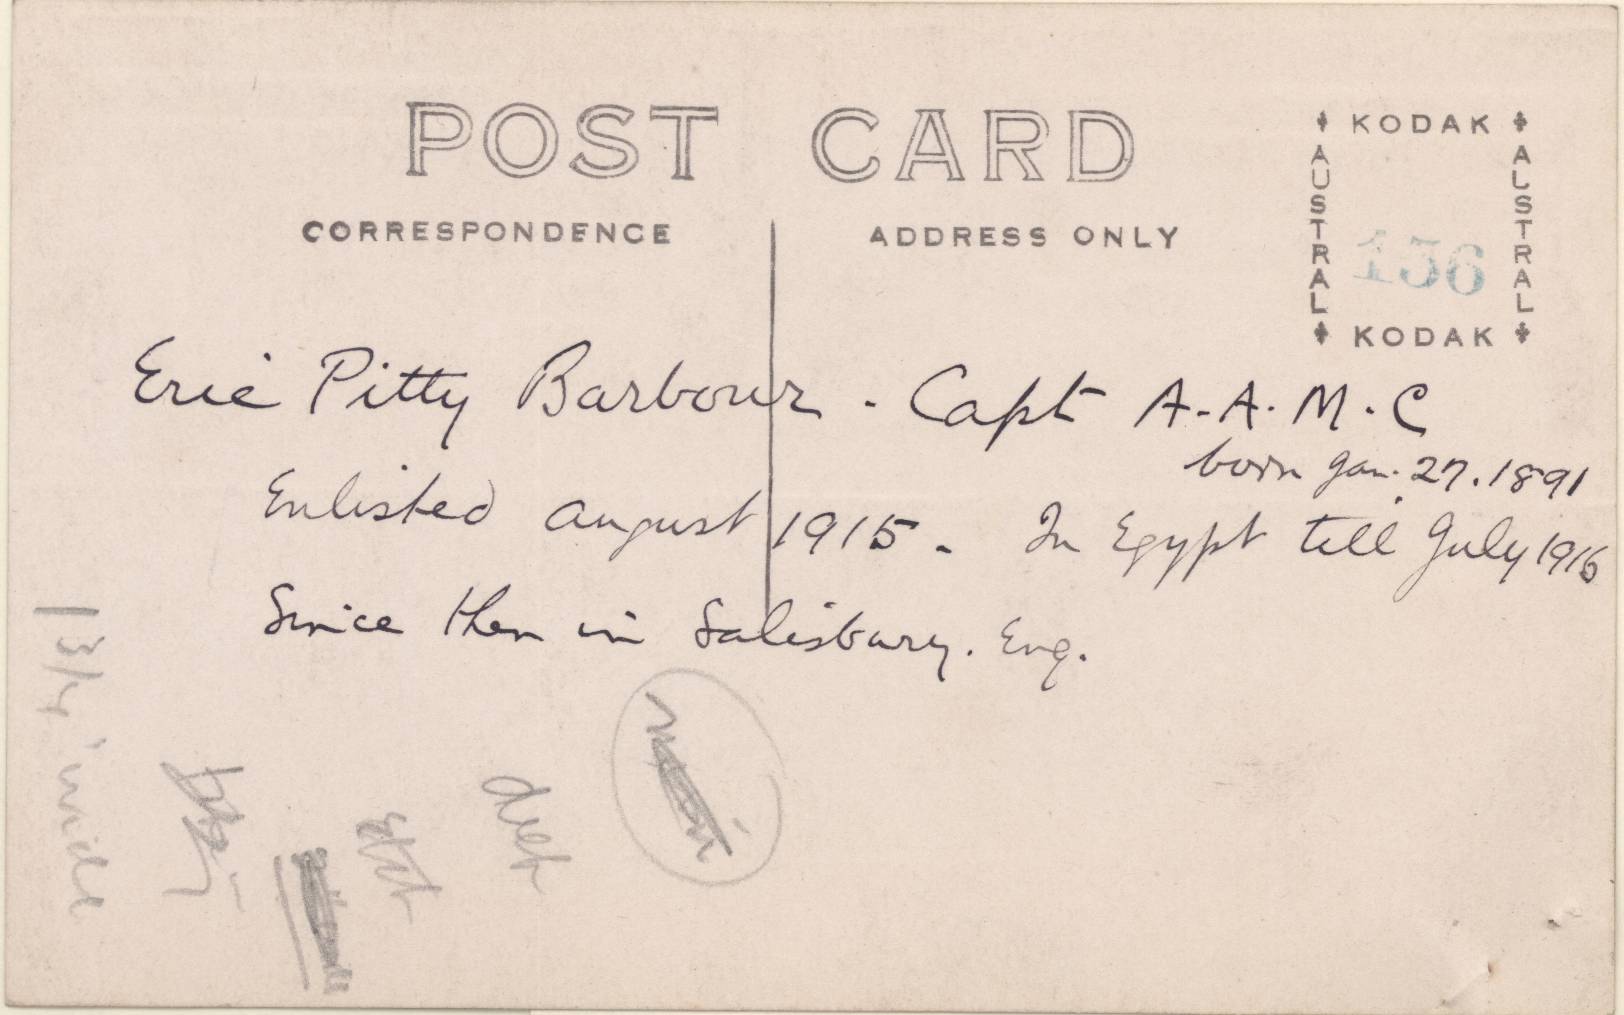 POST CARD
CORRESPONDENCE
ADDRESS ONLY
KODAK
AUSTRAL
AUSTRAL
156
KODAK
Eric Pitty Barbour. Capt A.A.M.C
born Jan. 27. 1891
Enlisted August 1915. In Egypt till July 1916
Since then in Salisbury. Eng.